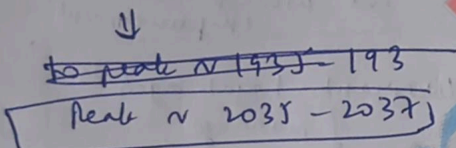 to peak ~ 1935 - 193
Peak ~ 2035 - 2037